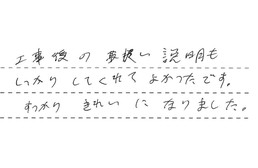 工事後の取扱い説明も
しっかりしてくれてよかったです。
すっかりきれいになりました。